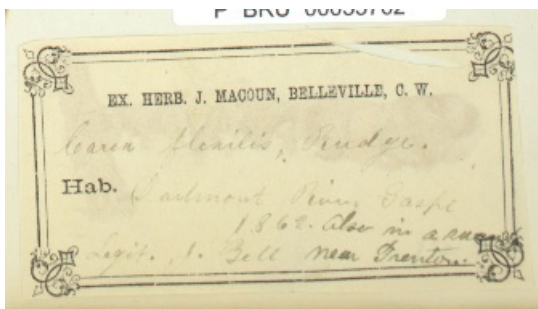 P BRU 00055762
EX. HERB. J. MACOUN, BELLEVILLE, C. W.
Carex flexilis, Rudge.
Hab. Dartmout River Gaspé
1862. Also in a
Legit. J. Bell near Trenton.